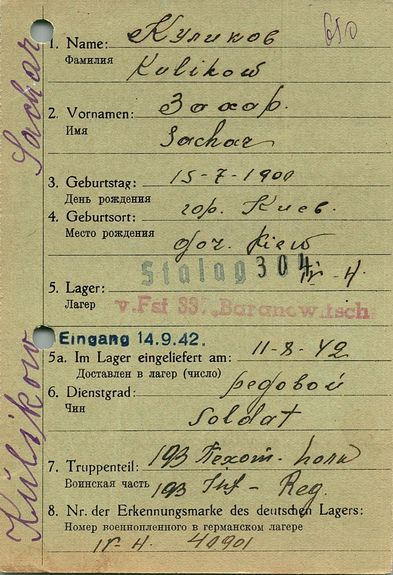 650
1. Name: Куликов
Фамилия
Kulikow
2. Vornamen: Захар.
Имя
Sachar
3. Geburtstag: 15-7-1900
День рождения гор. Киев.
4. Geburtsort:
Место рождения
gor. Kiew
Stalag 304 IV-H.
5. Lager:
Лагер
v. Fst 337 Baranowitsch
Eingang 14.9.42.
5a. Im Lager eingeliefert am: 11-8-42
Доставлен в лагер (число)
6. Dienstgrad: редовой
Чин
Soldat
7. Truppenteil: 193 Пехот. полк
Воинская часть 193 Inf- Reg.
8. Nr. der Erkennungsmarke des deutschen Lagers:
Номер военнопленного в германском лагере
IV-H. 40901
Kulikow Sachar